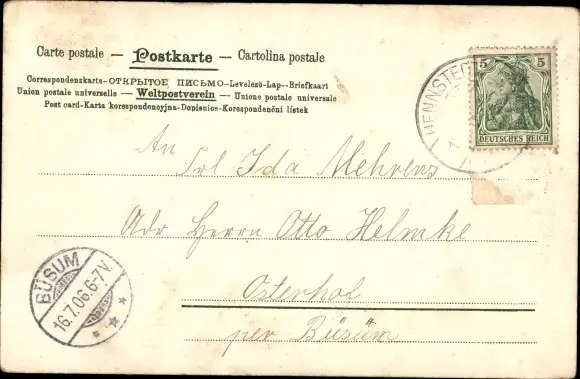 Carte postale — Postkarte — Cartolina postale
Correspondenzkarte-ОТКРЫТОЕ ПИСЬМО-Levelező-Lap--Briefkaart
Union postale universelle — Weltpostverein — Unione postale universale
Post card-Karta korespondencyjna-Dopisnice-Korespondenční lístek
5 5
DEUTSCHES REICH
HENNSTED
An
Frl Ida Mehrens
Adr Herrn Otto Helmke
Osterhof
per Büsum
BÜSUM
16.7.06.6-7V.